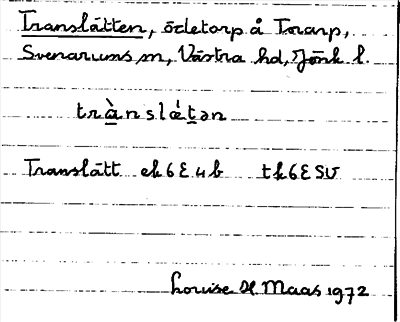 Translätten, ödetorp å Torarp,
Svenarums sn, Västra hd, Jönk l.
trànslǽtən
Translätt ek 6 E 4 b tk 6 E SV
Louise H Maas 1972